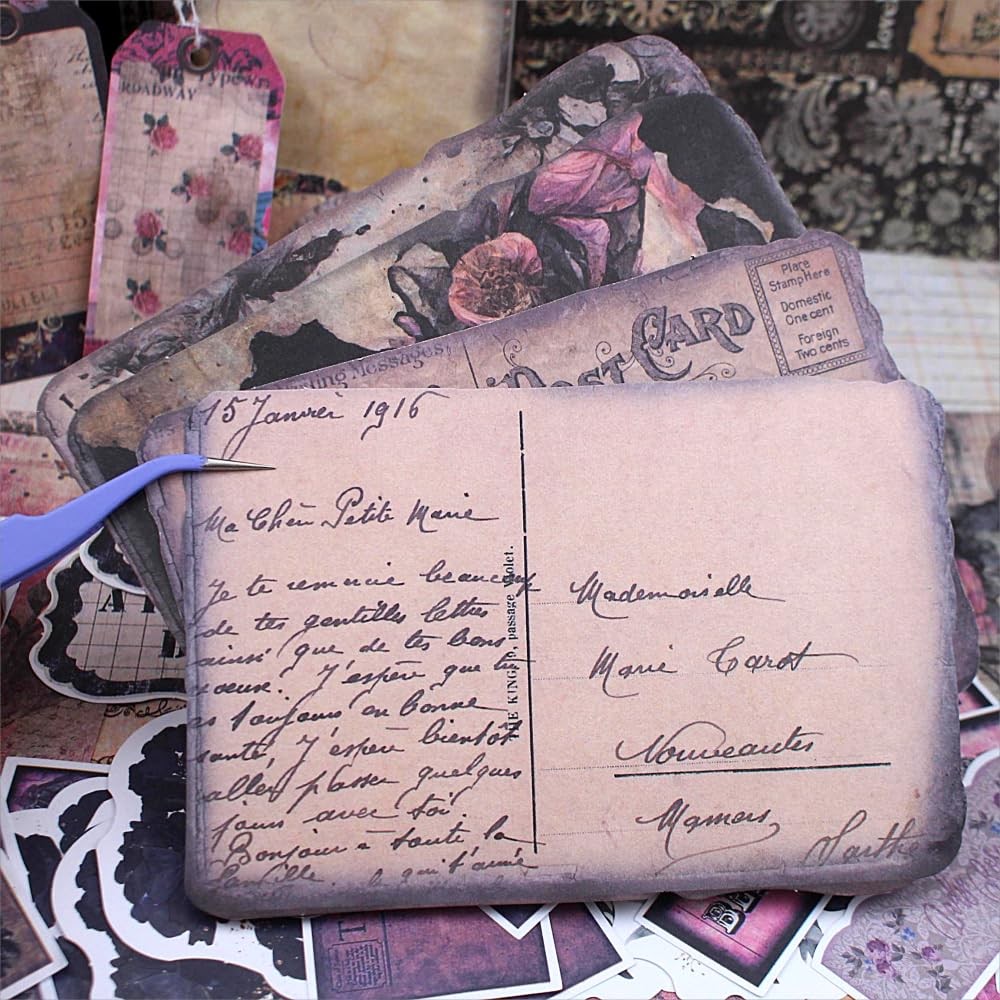 Typewr
ROADWAY
Love
Place
Stamp Here
Domestic
One cent
Foreign
Two cents
Post Card
Messages
15 Janvier 1916
Ma Chère Petite Marie
Je te remercie beaucoup
de tes gentilles lettres
ainsi que de tes bons
voeux. J'espère que tu
as toujours en bonne
santé, J'espère bientôt
aller passer quelques
jours avec toi.
Bonjour à toute la
famille. qui t'aime
THE KING passage Violet.
Mademoiselle
Marie Carot
Nouveautés
Mamers
Sarthe